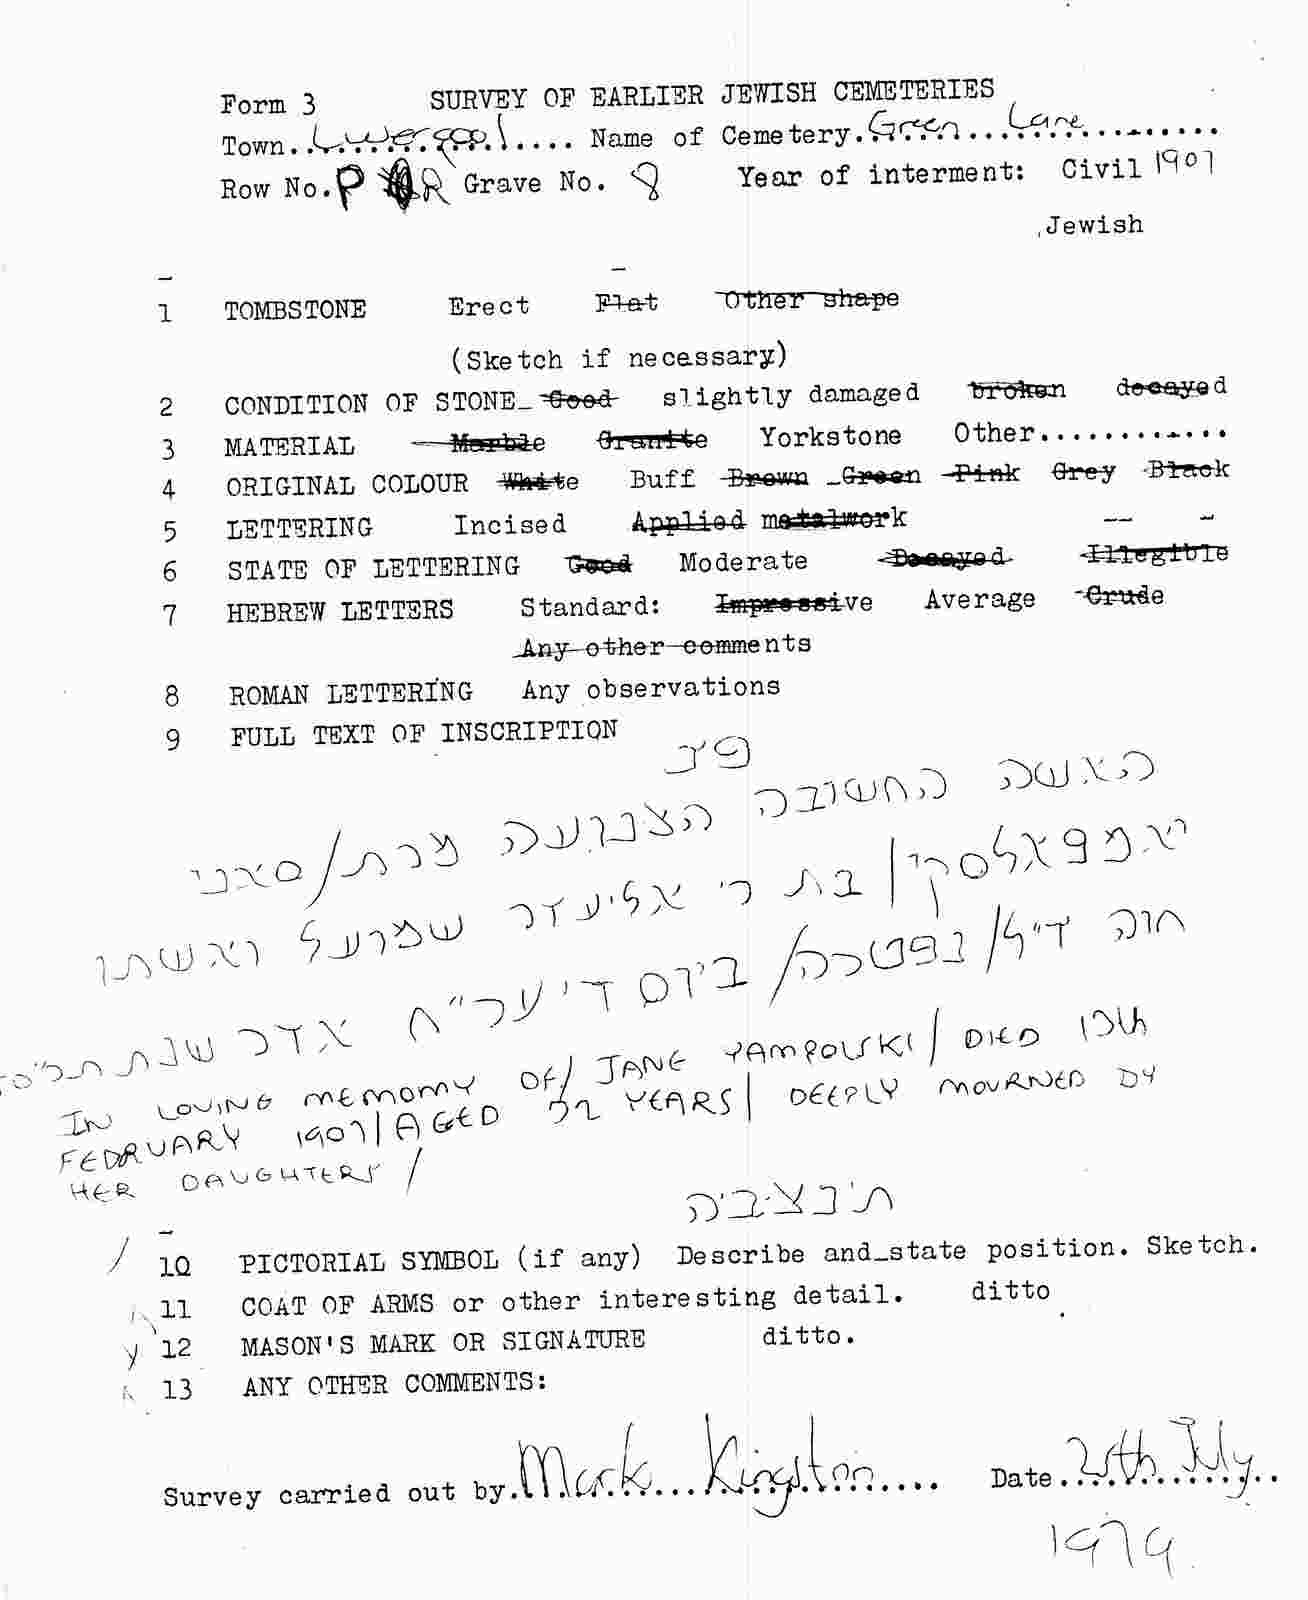 Form 3 SURVEY OF EARLIER JEWISH CEMETERIES
Town..Liverpool.... Name of Cemetery.Green Lane
Row No. P R Grave No. 8 Year of interment: Civil 1907
Jewish
1 TOMBSTONE Erect Flat Other shape
(Sketch if necessary)
2 CONDITION OF STONE Good slightly damaged broken decayed
3 MATERIAL Marble Granite Yorkstone Other............
4 ORIGINAL COLOUR White Buff Brown Green Pink Grey Black
5 LETTERING Incised Applied metalwork
6 STATE OF LETTERING Good Moderate Decayed Illegible
7 HEBREW LETTERS Standard: Impressive Average Crude
Any other comments
8 ROMAN LETTERING Any observations
9 FULL TEXT OF INSCRIPTION
פנ
האשה החשובה הצנועה מרת/סאני
יאמפאלסקי/בת ר' אליעזר שמועל ואשתו
חוה ז"ל/נפטרה/ביום ד' ער"ח אדר שנת
IN LOVING MEMOMY OF/ JANE YAMPOLSKI/ DIED 13th
FEBRUARY 1907/AGED 52 YEARS/ DEEPLY MOURNED BY
HER DAUGHTERS/
ת'נ'צ'ב'ה
10 PICTORIAL SYMBOL (if any) Describe and state position. Sketch.
11 COAT OF ARMS or other interesting detail. ditto
12 MASON'S MARK OR SIGNATURE ditto.
13 ANY OTHER COMMENTS:
Survey carried out by.Mark Kingston.... Date.. July
1979